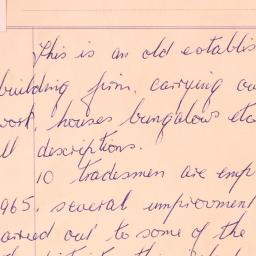 This is an old establis
building firm, carrying ou
work, houses bungalows etc
ll descriptions.
10 tradesmen are emp
965, several improvment
arried out to some of the